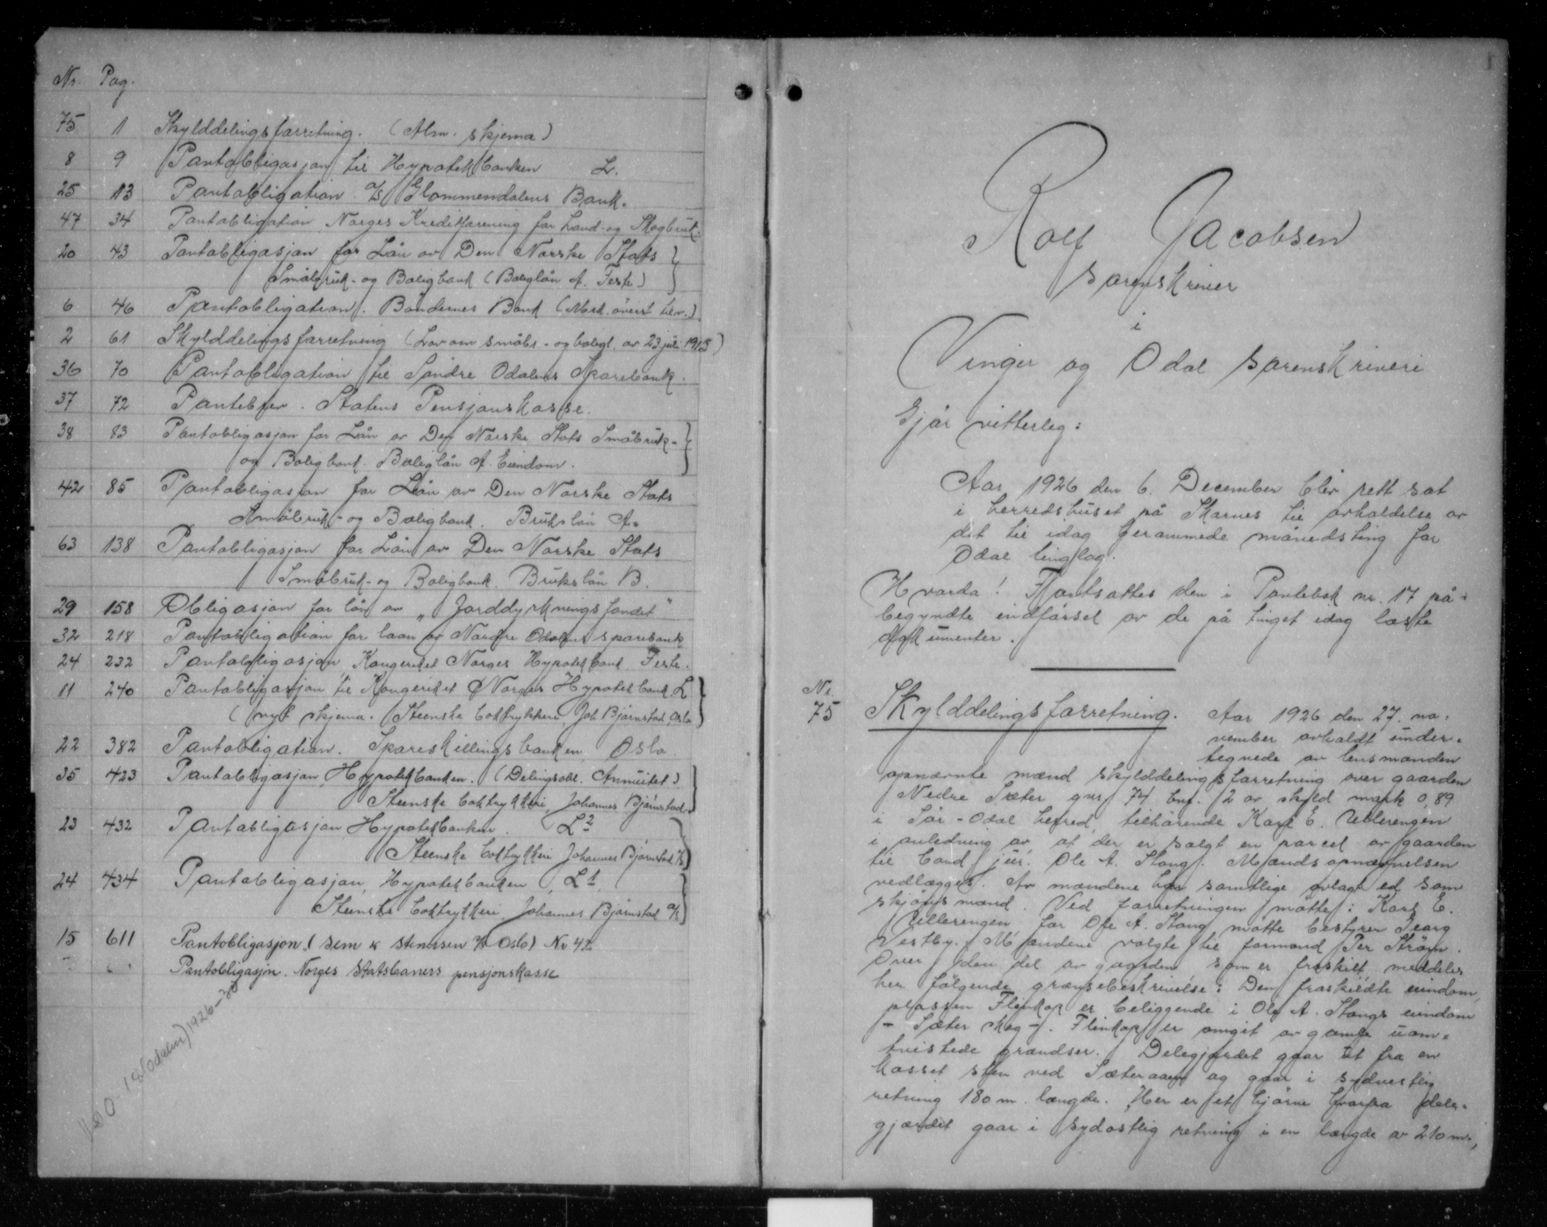 Nr. Pag.
75 1 Skylddelingsforretning. (Alm. skjema)
8 9 Pantobligasjon til Hypotekbanken L.
25 13 Pantobligation A/S Glommendalens Bank.
47 34 Pantobligation Norges Kreditforening for Land- og Skogbruk.
20 43 Pantobligasjon for Lån av Den Norske Stats
Småbruk- og Boligbank (Boliglån A. Feste)
6 46 Pantobligation. Bøndernes Bank (Merk. øverst tilv.)
2 61 Skylddelingsforretning (Lov om småbr.- og boligl. av 23 juli 1915)
36 70 Pantobligation til Søndre Odalens Sparebank.
37 72 Pantebrev. Statens Pensjonskasse.
38 83 Pantobligasjon for Lån av Den Norske Stats Småbruk-
og Boligbank. Boliglån A. Eiendom.
42 85 Pantobligasjon for Lån av Den Norske Stats
Småbruk- og Boligbank. Brukslån A.
63 138 Pantobligasjon for Lån av Den Norske Stats
Småbruk- og Boligbank. Brukslån B.
29 158 Obligasjon for lån av „Jorddyrkningsfondet"
32 218 Pantobligation for laan av Nordre Odalens sparebank
24 232 Pantobligasjon Kongeriket Norges Hypotekbank Feste.
11 240 Pantobligasjon til Kongeriket Norges Hypotekbank L
(nyt skjema. Steenske boktrykkeri, Joh Bjørnstad, Oslo)
22 382 Pantobligation. Spareskillingsbanken, Oslo
35 423 Pantobligasjon, Hypotekbanken. (Delingsobl. Annuitet)
Steenske boktrykkeri, Johannes Bjørnstad.
23 432 Pantobligasjon Hypotekbanken. L2
Steenske boktrykkeri Johannes Bjørnstad A/S
24 434 Pantobligasjon, Hypotekbanken, L1.
Steenske boktrykkeri Johannes Bjørnstad A/S
15 611 Pantobligasjon. (Sem & Stenersen A/S Oslo) Nr. 42
Pantobligasjon. Norges Statsbaners pensjonskasse
18 (Odalen) 1926-30
Rolf Jacobsen
sorenskriver
i
Vinger og Odal sorenskriveri
Gjør vitterleg:
Aar 1926 den 6. December blev rett sat
i herredshuset på Skarnes til avholdelse av
det til idag berammede månedsting for
Odal tinglag.
Hvorda! Fortsattes den i Pantebok nr. 17 på-
begyndte indførsel av de på tinget idag læste
dokumenter.
Nr.
75 Skylddelingsforretning. Aar 1926 den 27. no-
vember avholdt under-
tegnede av lensmanden
opnævnte mænd skylddelingsforretning over gaarden
Nedre Sæter gnr. 74 bnr. 2 av skyld mark 0,89
i Sør-Odal herred, tilhørende Karl E. Ullerengen
i anledning av at der er solgt en parcel av gaarden
til cand. jur. Ole A. Stang. Mandsopnævnelsen
vedlægges. Av mændene har samtlige avlagt ed som
skjønsmænd. Ved forretningen møtte: Karl E.
Ullerengen, for Ole A. Stang møtte bestyrer Georg
Vestby. Mændene valgte til formand Per Strøm.
Over den del av gaarden som er fraskilt meddeles
her følgende grænsebeskrivelse: Den fraskildte eiendom,
plassen Flinkop er beliggende i Ole A. Stangs eiendom
- Sæter skog -. Flinkop er omgit av gamle uom-
tvistede grændser. Delegjærdet gaar ut fra en
kasset sten ved Sæteraaen og gaar i sydvestlig
retning 180 m. længde. Her er et hjørne hvorfra dele-
gjærdet gaar i sydøstlig retning i en længde av 210 m.,